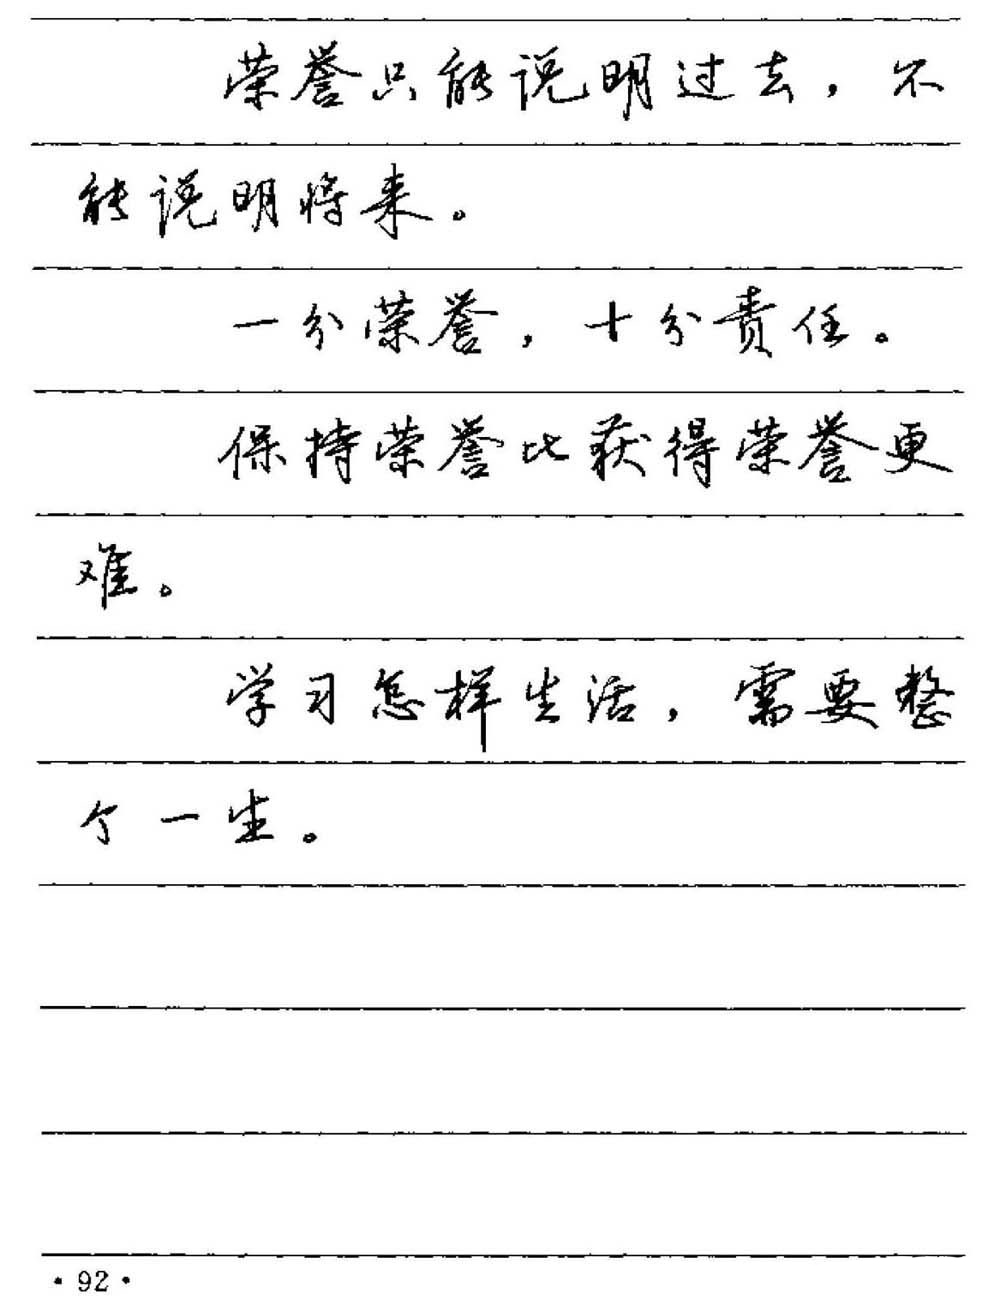 荣誉只能说明过去，不
能说明将来。
一分荣誉，十分责任。
保持荣誉比获得荣誉更
难。
学习怎样生活，需要整
个一生。
·92·